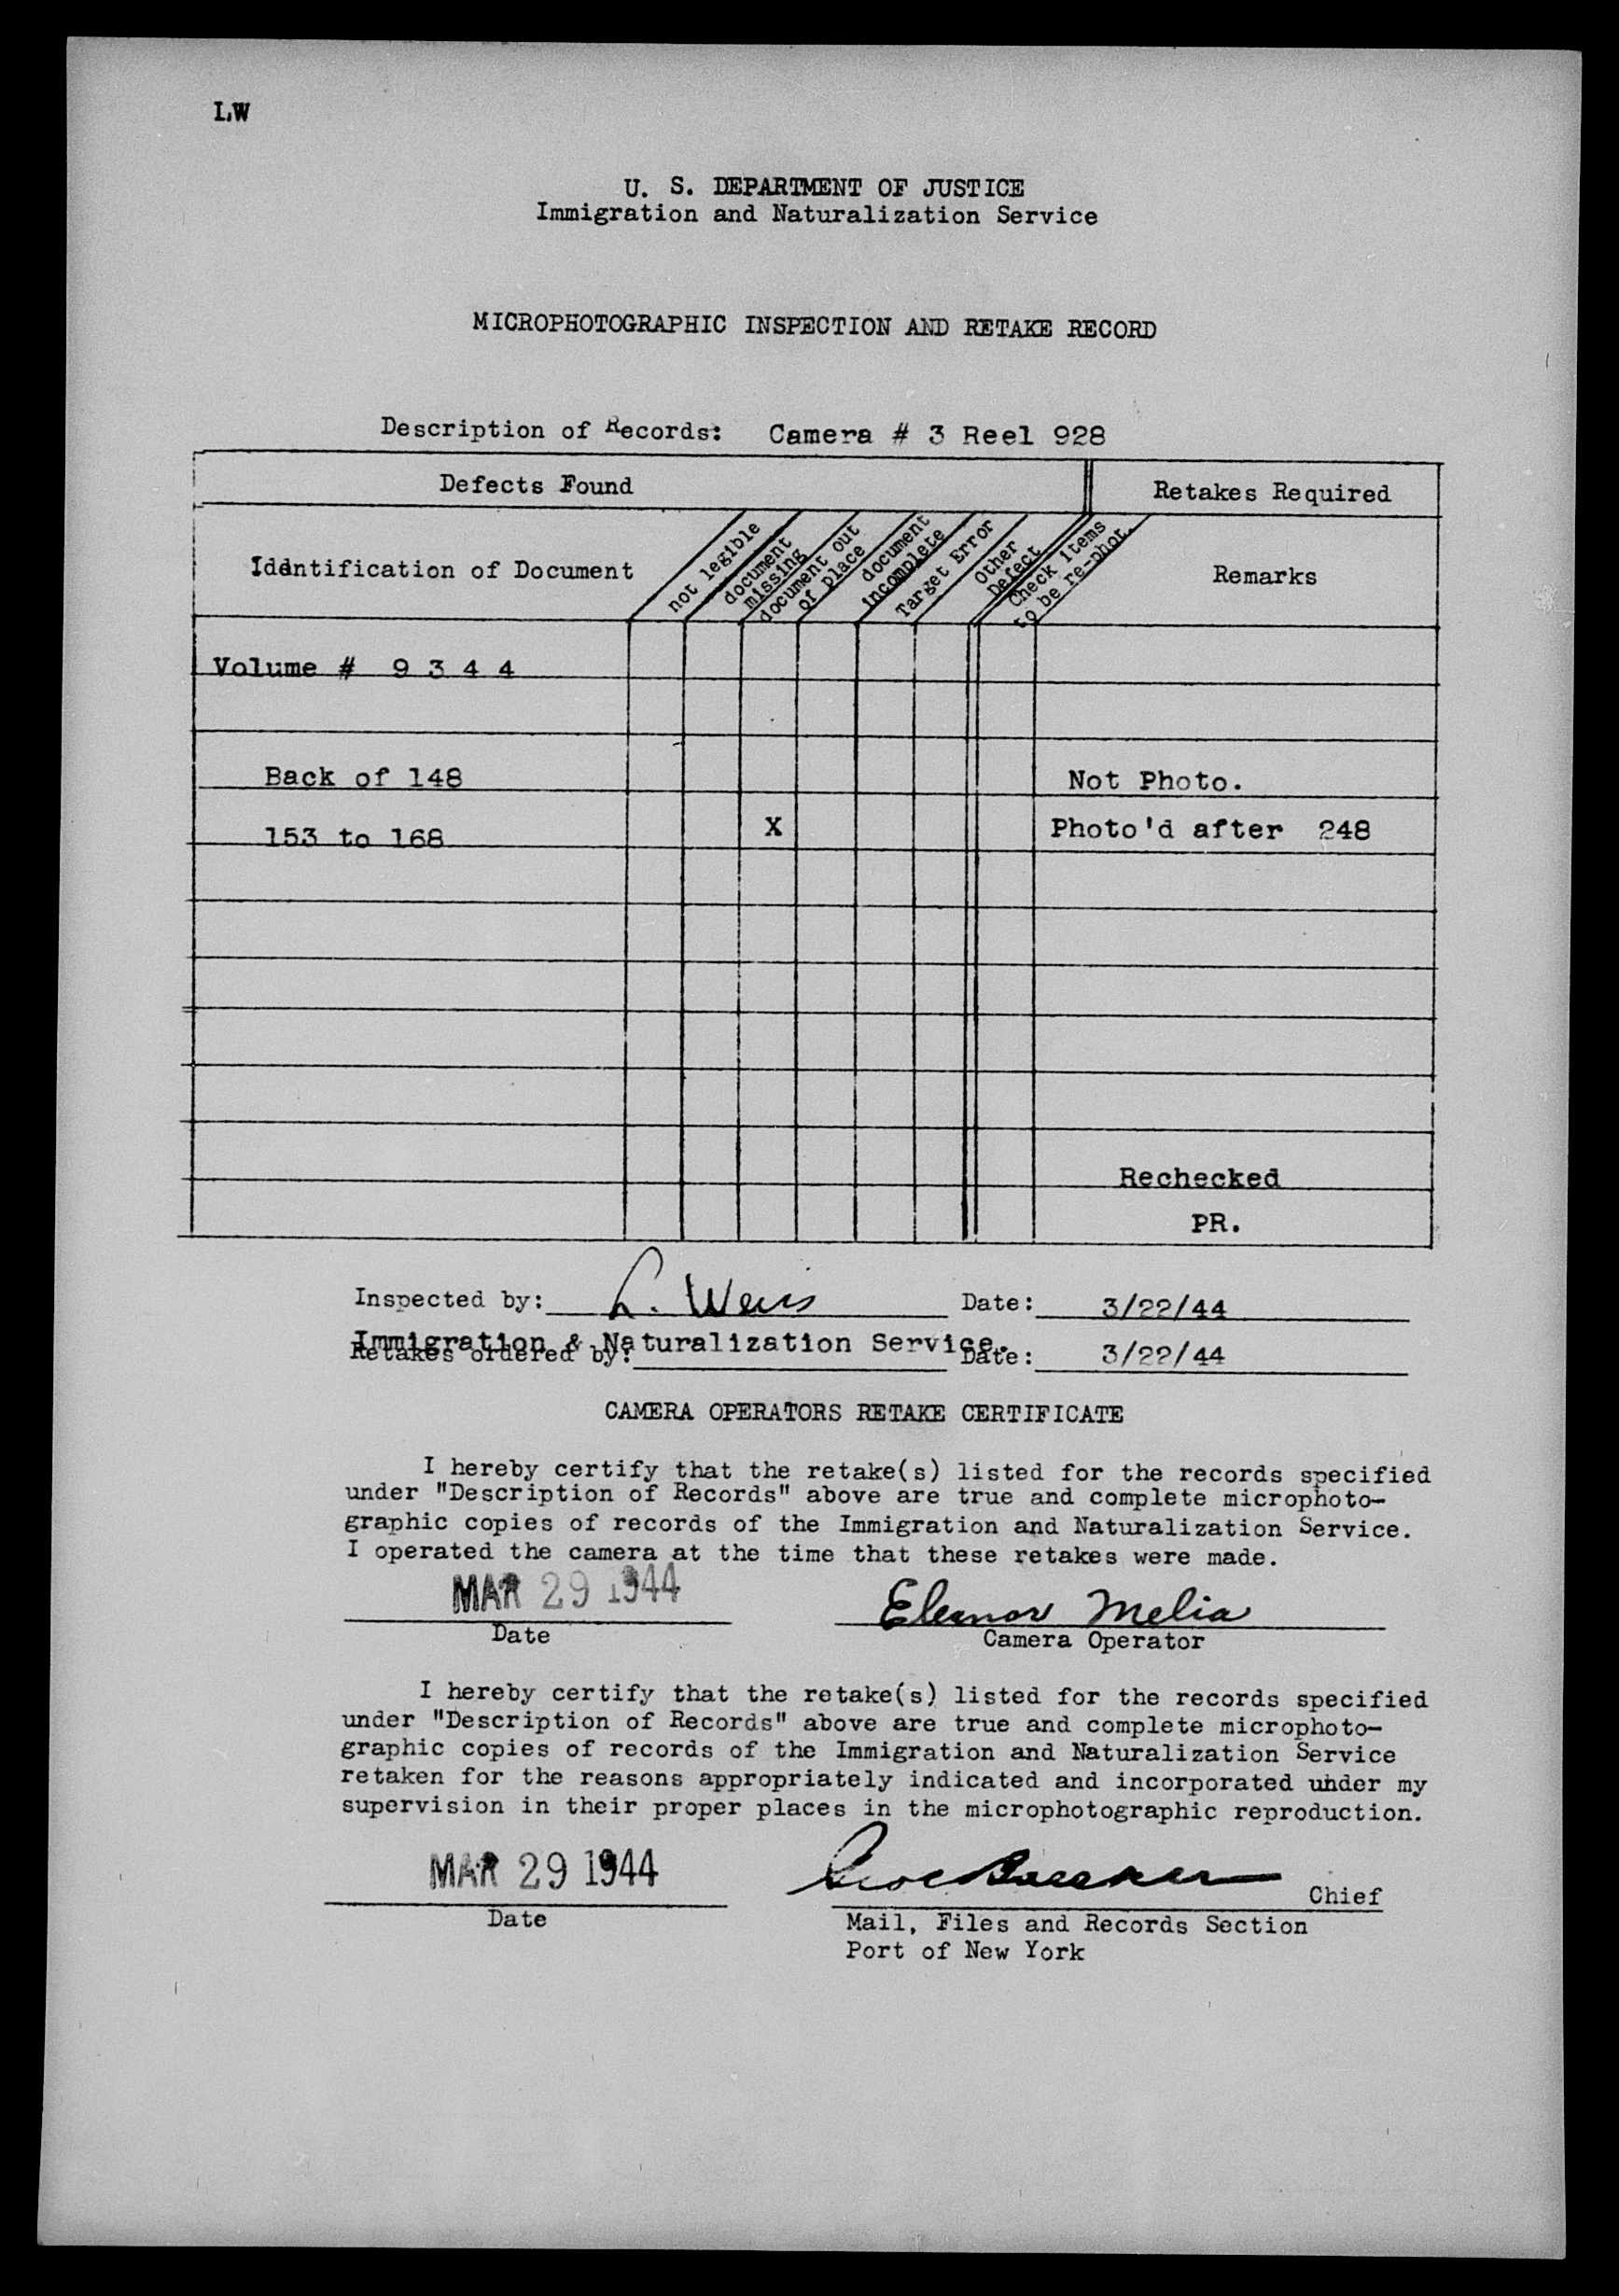 LW
U. S. DEPARTMENT OF JUSTICE
Immigration and Naturalization Service
MICROPHOTOGRAPHIC INSPECTION AND RETAKE RECORD
Description of Records: Camera # 3 Reel 928
Defects Found
Retakes Required
Identification of Document
not legible
document
missing
document out
of place
document
incomplete
Target Error
Other
Defect
Check Items
to be re-phot.
Remarks
Volume # 9 3 4 4
Back of 148 Not Photo.
153 to 168 X Photo'd after 248
Rechecked
PR.
Inspected by: L. Weiss Date: 3/22/44
Immigration & Naturalization Service.
Retakes ordered by: Date: 3/22/44
CAMERA OPERATORS RETAKE CERTIFICATE
I hereby certify that the retake(s) listed for the records specified
under "Description of Records" above are true and complete microphoto-
graphic copies of records of the Immigration and Naturalization Service.
I operated the camera at the time that these retakes were made.
MAR 29 1944 Eleanor Melia
Date Camera Operator
I hereby certify that the retake(s) listed for the records specified
under "Description of Records" above are true and complete microphoto-
graphic copies of records of the Immigration and Naturalization Service
retaken for the reasons appropriately indicated and incorporated under my
supervision in their proper places in the microphotographic reproduction.
MAR 29 1944
Chief
Date Mail, Files and Records Section
Port of New York